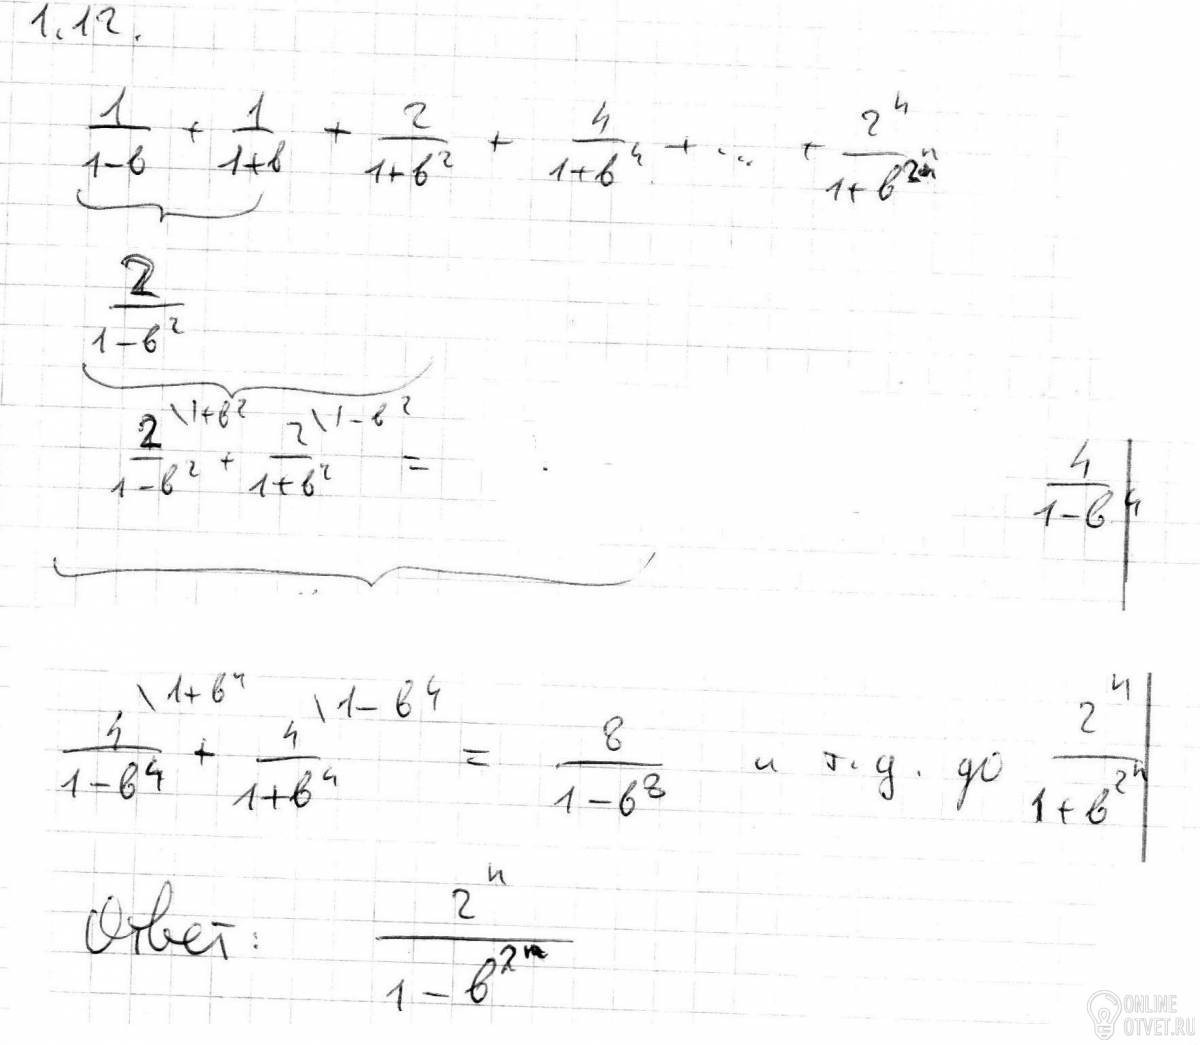 1.12.
1/(1-в) + 1/(1+в) + 2/(1+в²) + 4/(1+в⁴) + ... + 2ⁿ/(1+в^(2ⁿ))
2/(1-в²)
2\1+в²/(1-в²) + 2\1-в²/(1+в²) =
4/(1-в⁴)
4\1+в⁴/(1-в⁴) + 4\1-в⁴/(1+в⁴) = 8/(1-в⁸) и т.д. до 2ⁿ/(1+в^(2ⁿ))
Ответ: 2ⁿ/(1-в^(2ⁿ))
ONLINE
OTVET.RU